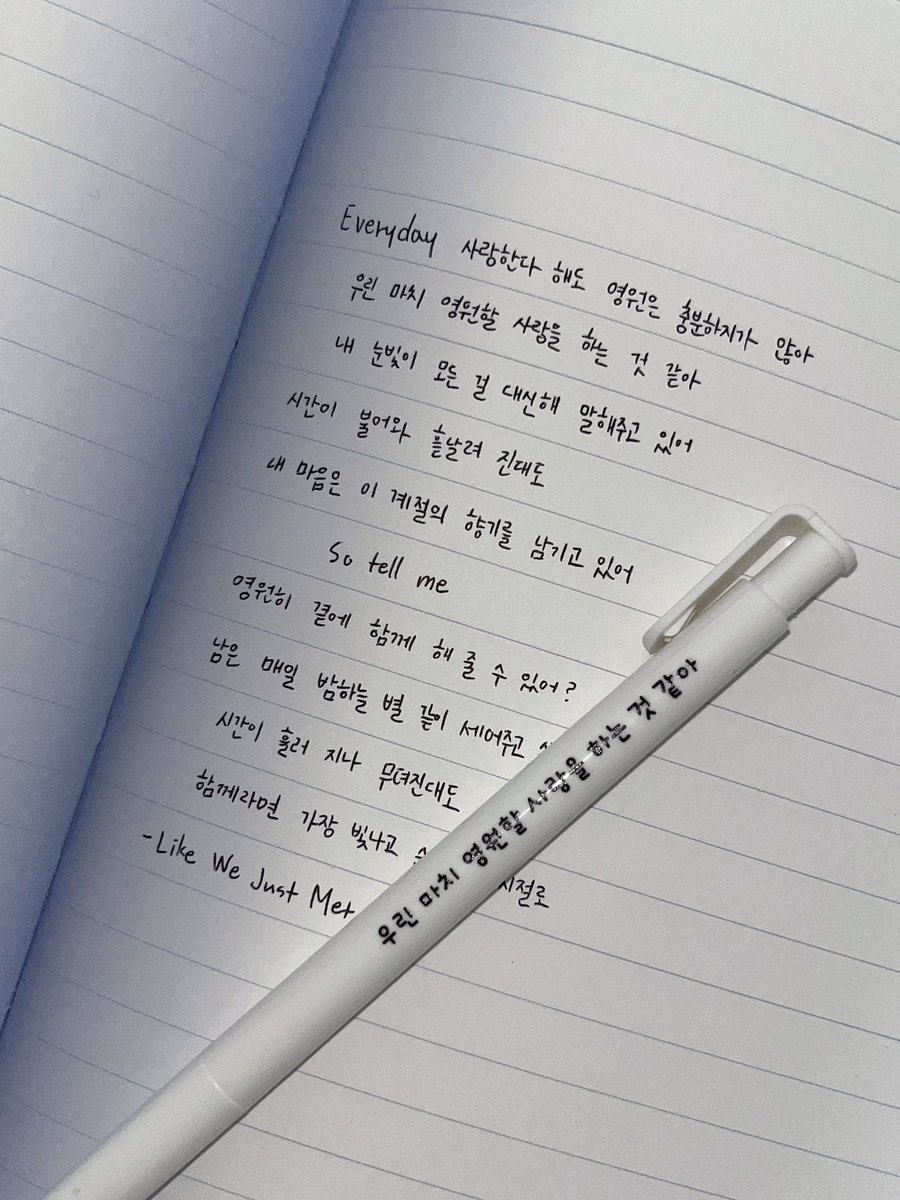 Everyday 사랑한다 해도 영원은 충분하지가 않아
우린 마치 영원할 사랑을 하는 것 같아
내 눈빛이 모든 걸 대신해 말해주고 있어
시간이 불어와 흩날려 진대도
내 마음은 이 계절의 향기를 남기고 있어
So tell me
영원히 곁에 함께 해 줄 수 있어?
남은 매일 밤하늘 별 같이 세어주고
시간이 흘러 지나 무뎌진대도
함께라면 가장 빛나고 시절로
-Like We Just Met
우린 마치 영원할 사랑을 하는 것 같아